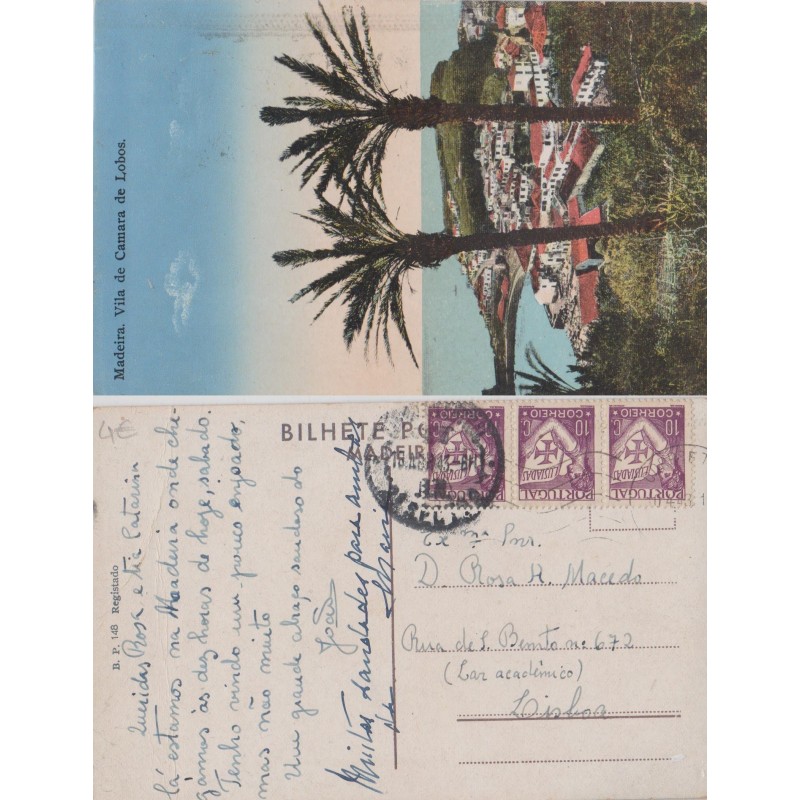 Madeira. Vila de Camara de Lobos.
4€
BILHETE
MADEIRA
B. P. 148 Registado
PORTUGAL
LUSIADAS
CORREIO
10 C.
PORTUGAL
LUSIADAS
CORREIO
10 C.
PORTUGAL
LUSIADAS
CORREIO
10 C.
Queridas Rosa e tia Catarina
Cá estamos na Madeira onde che-
gámos às dez horas de hoje, sabado.
Tenho vindo um pouco enjoado,
mas não muito
Um grande abraço saudoso do
João
Muitas saudades para ambas
da Maria
Exmª Snr.
D. Rosa H. Macedo
Rua de S. Bento nº 672
(Lar académico)
Lisboa